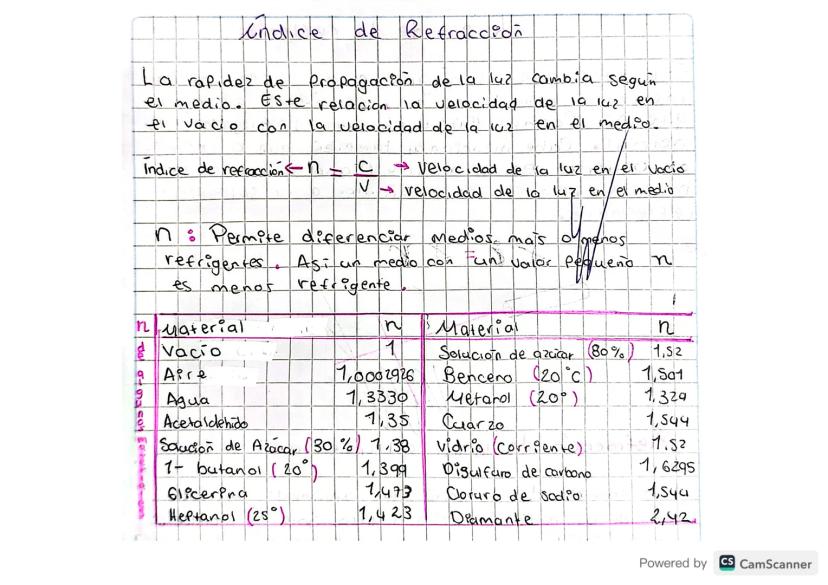 índice de Refracción
La rapidez de propagación de la luz cambia según
el medio. Este relación la velocidad de la luz en
el vacio con la velocidad de la luz en el medio.
índice de refracción ← n = C/V → velocidad de la luz en el vacio
→ velocidad de la luz en el medio
n : Permite diferenciar medios más o menos
refrigentes. Así un medio con un valor pequeño n
es menos refrigente.
n de algunos materiales
Material n Material n
Vacio 1 Solución de azúcar (80%) 1,52
Aire 1,0002926 Benceno (20°C) 1,501
Agua 1,3330 Metanol (20°) 1,329
Acetaldehido 1,35 Cuarzo 1,544
Solución de Azúcar (30%) 1.38 Vidrio (corriente) 1.52
1- butanol (20°) 1,399 Disulfuro de carbono 1,6295
Glicerina 1,473 Cloruro de sodio 1,544
Heptanol (25°) 1,423 Diamante 2,42
Powered by CS CamScanner